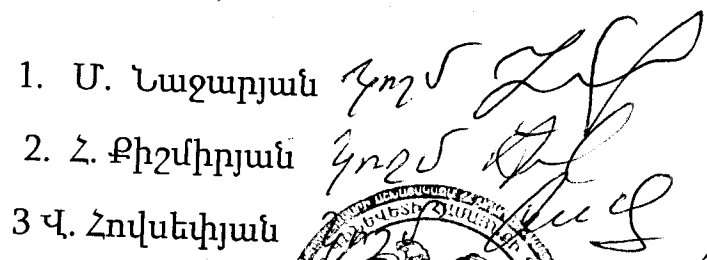 1. Մ. Նաջարյան կողմ
2. Հ. Քիշմիրյան կողմ
3 Վ. Հովսեփյան կողմ